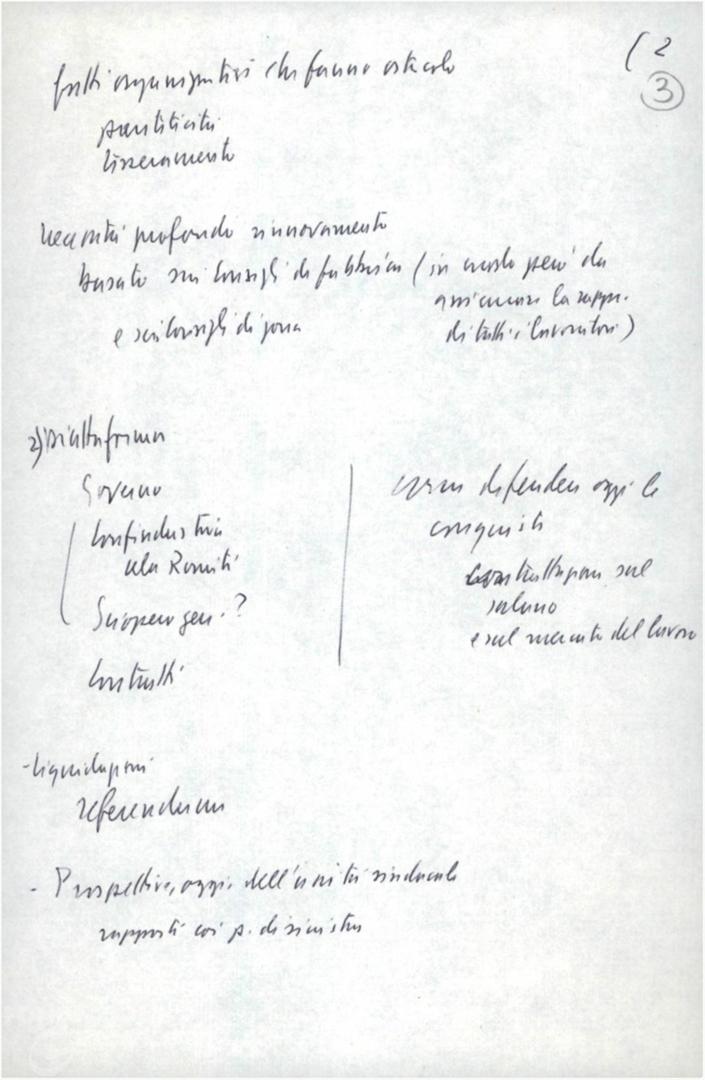 (2
3
fatti organizzativi che fanno ostacolo
pariteticità
tesseramento
necessità profondo rinnovamento
basato sui Consigli di fabbrica (in modo però da
assicurare la rappr.
di tutti i lavoratori)
e sui Consigli di zona
2) Piattaforma
Governo
Confindustria
ala Romiti
Sciopero gen.?
Contratti
come difendere oggi le
conquiste
contrattazione sul
salario
e sul mercato del lavoro
- liquidazioni
referendum
- Prospettive, oggi, dell'unità sindacale
rapporti coi p. di sinistra